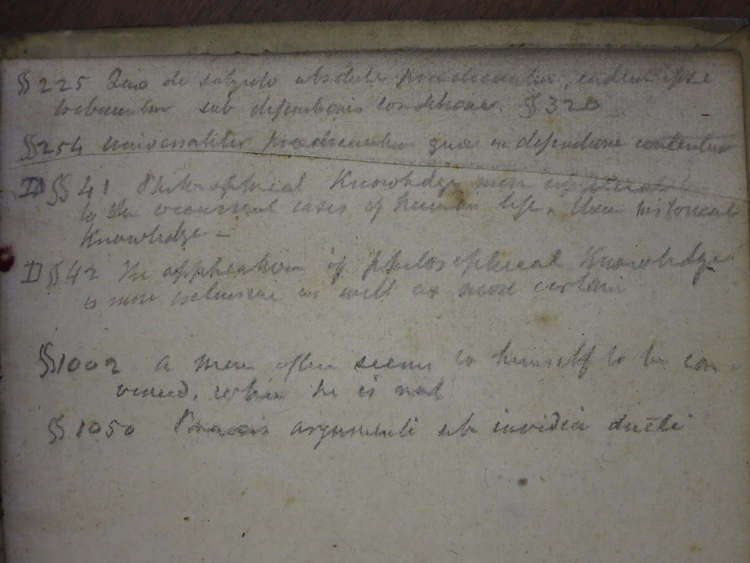 § 225 Quae de subjecto absolute praedicantur, eadem ipsi
tribuuntur sub definitionis conditione. § 320
§§254 universaliter praedicantur quae in definitione continentur
D §§ 41 Philosophical Knowledge more
to the occurrent cases of human life, than historical
Knowledge –
D § 42 The application of philosophical Knowledge
is more extensive as well as more certain
§§1002 a man often seems to himself to be con
vinced, when he is not
§§ 1050 Praxis argumenti ab invidia ducti